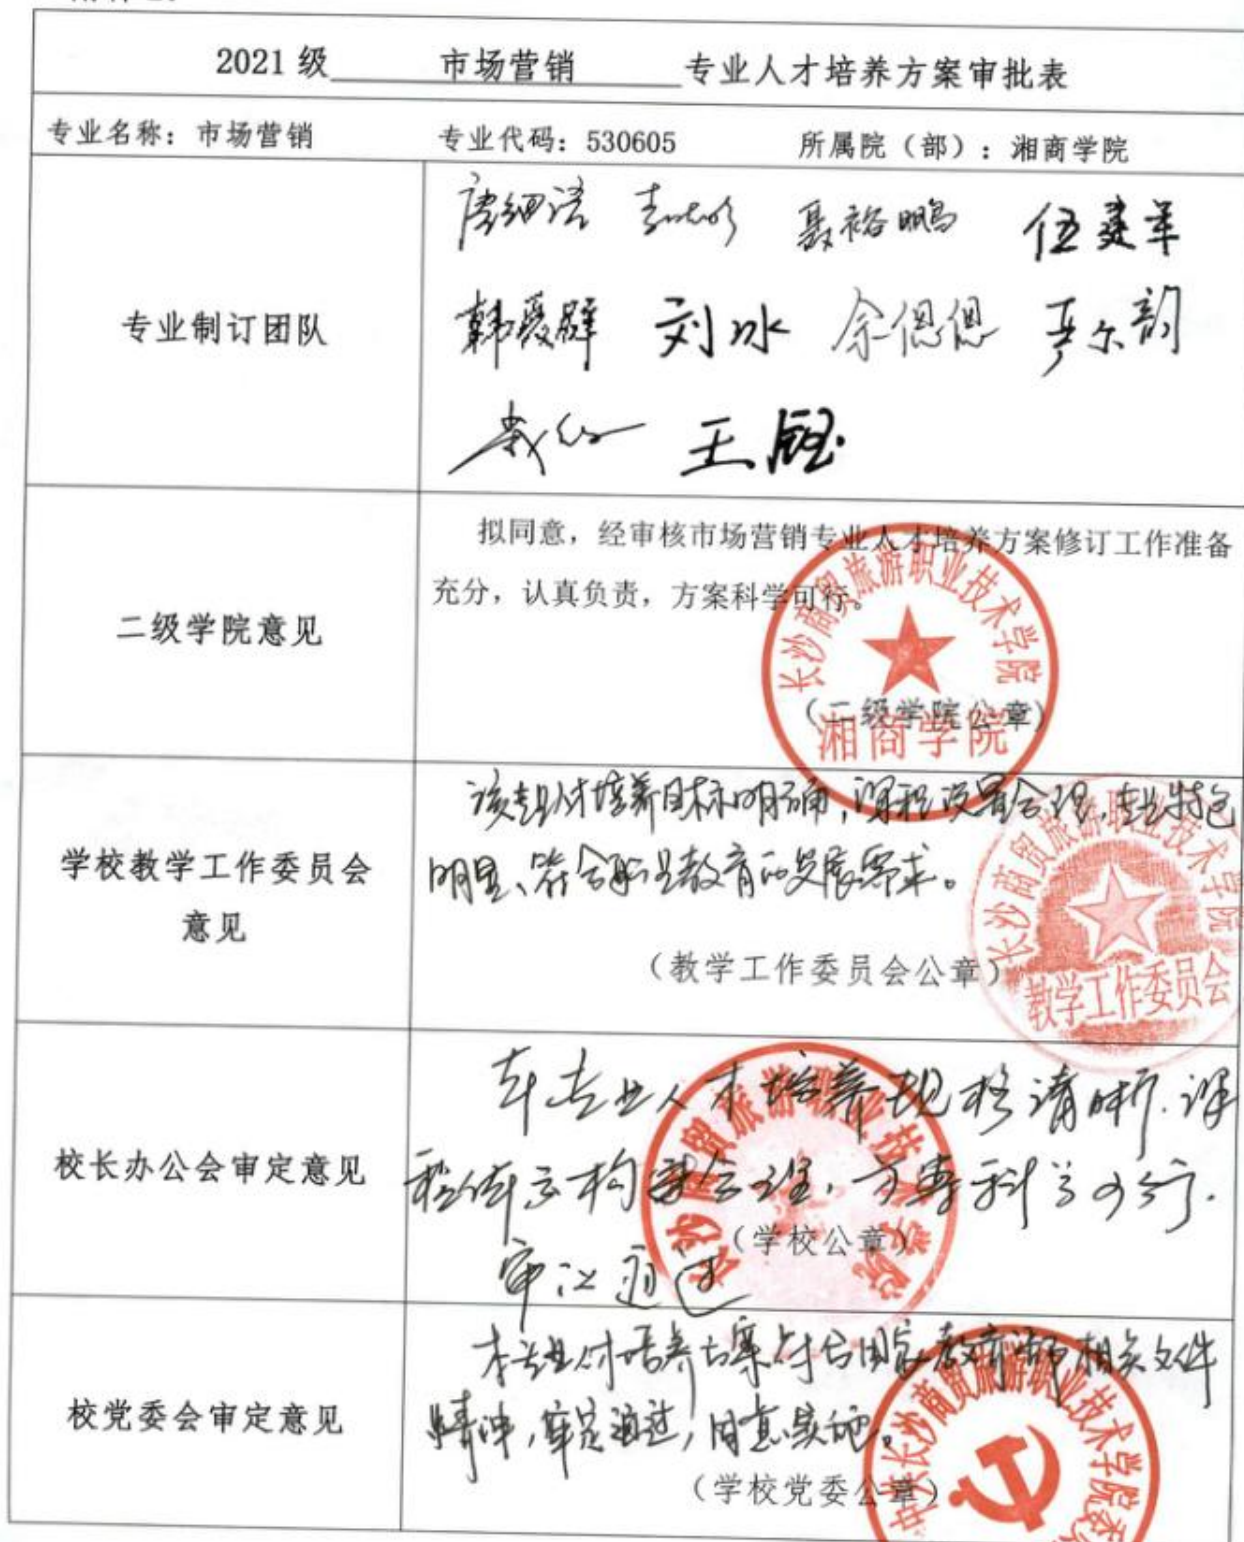 2021 级 市场营销 专业人才培养方案审批表
专业名称：市场营销 专业代码：530605 所属院（部）：湘商学院
专业制订团队
唐细语 聂裕鹏 伍建军
刘冰 余偲偲
王钰
二级学院意见
拟同意，经审核市场营销专业人才培养方案修订工作准备
充分，认真负责，方案科学可行。
（二级学院公章）
长沙商贸旅游职业技术学院
湘商学院
学校教学工作委员会
意见
该专业人才培养目标明确，课程设置合理，专业特色
明显、符合职业教育的发展需求。
（教学工作委员会公章）
长沙商贸旅游职业技术学院
教学工作委员会
校长办公会审定意见
本专业人才培养规格清晰．课
程体系构建合理，方案科学可行．
审议通过
（学校公章）
长沙商贸旅游职业技术学院
校党委会审定意见
本专业人才培养方案符合国家教育部相关文件
精神，审定通过，同意实施。
（学校党委公章）
中共长沙商贸旅游职业技术学院委